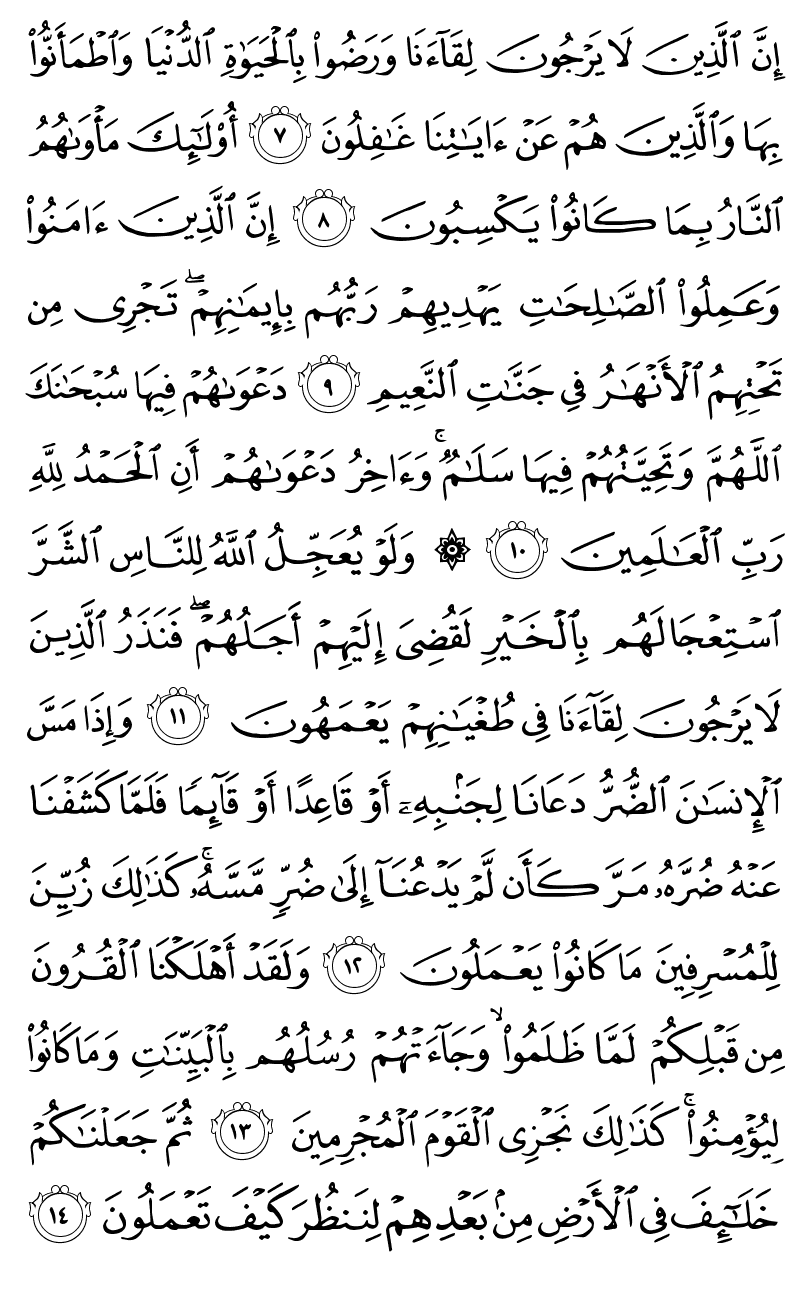 إِنَّ ٱلَّذِينَ لَا يَرْجُونَ لِقَآءَنَا وَرَضُوا۟ بِٱلْحَيَوٰةِ ٱلدُّنْيَا وَٱطْمَأَنُّوا۟
بِهَا وَٱلَّذِينَ هُمْ عَنْ ءَايَـٰتِنَا غَـٰفِلُونَ ٧ أُو۟لَـٰٓئِكَ مَأْوَىٰهُمُ
ٱلنَّارُ بِمَا كَانُوا۟ يَكْسِبُونَ ٨ إِنَّ ٱلَّذِينَ ءَامَنُوا۟
وَعَمِلُوا۟ ٱلصَّـٰلِحَـٰتِ يَهْدِيهِمْ رَبُّهُم بِإِيمَـٰنِهِمْ ۖ تَجْرِى مِن
تَحْتِهِمُ ٱلْأَنْهَـٰرُ فِى جَنَّـٰتِ ٱلنَّعِيمِ ٩ دَعْوَىٰهُمْ فِيهَا سُبْحَـٰنَكَ
ٱللَّهُمَّ وَتَحِيَّتُهُمْ فِيهَا سَلَـٰمٌ ۚ وَءَاخِرُ دَعْوَىٰهُمْ أَنِ ٱلْحَمْدُ لِلَّهِ
رَبِّ ٱلْعَـٰلَمِينَ ١٠ ۞ وَلَوْ يُعَجِّلُ ٱللَّهُ لِلنَّاسِ ٱلشَّرَّ
ٱسْتِعْجَالَهُم بِٱلْخَيْرِ لَقُضِىَ إِلَيْهِمْ أَجَلُهُمْ ۖ فَنَذَرُ ٱلَّذِينَ
لَا يَرْجُونَ لِقَآءَنَا فِى طُغْيَـٰنِهِمْ يَعْمَهُونَ ١١ وَإِذَا مَسَّ
ٱلْإِنسَـٰنَ ٱلضُّرُّ دَعَانَا لِجَنۢبِهِۦٓ أَوْ قَاعِدًا أَوْ قَآئِمًا فَلَمَّا كَشَفْنَا
عَنْهُ ضُرَّهُۥ مَرَّ كَأَن لَّمْ يَدْعُنَآ إِلَىٰ ضُرٍّ مَّسَّهُۥ ۚ كَذَٰلِكَ زُيِّنَ
لِلْمُسْرِفِينَ مَا كَانُوا۟ يَعْمَلُونَ ١٢ وَلَقَدْ أَهْلَكْنَا ٱلْقُرُونَ
مِن قَبْلِكُمْ لَمَّا ظَلَمُوا۟ ۙ وَجَآءَتْهُمْ رُسُلُهُم بِٱلْبَيِّنَـٰتِ وَمَا كَانُوا۟
لِيُؤْمِنُوا۟ ۚ كَذَٰلِكَ نَجْزِى ٱلْقَوْمَ ٱلْمُجْرِمِينَ ١٣ ثُمَّ جَعَلْنَـٰكُمْ
خَلَـٰٓئِفَ فِى ٱلْأَرْضِ مِنۢ بَعْدِهِمْ لِنَنظُرَ كَيْفَ تَعْمَلُونَ ١٤